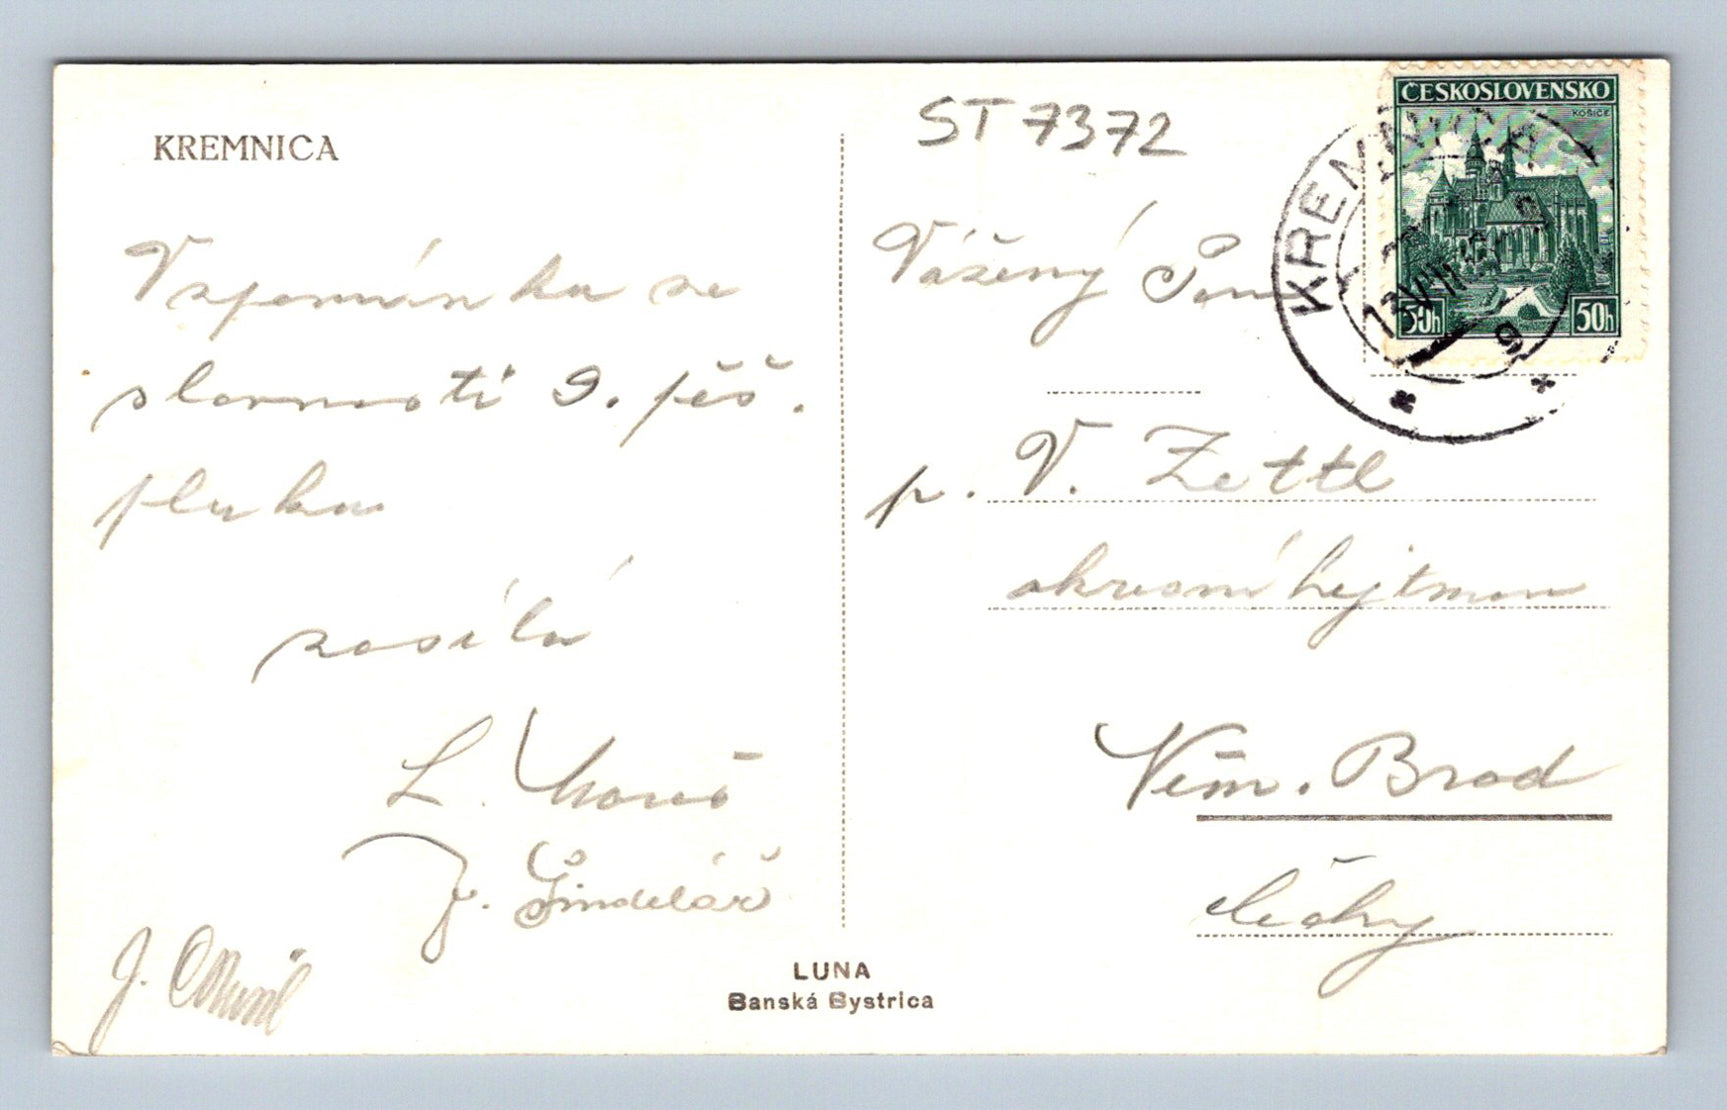 KREMNICA
ST 7372
ČESKOSLOVENSKO
KOŠICE
50h 50h
KREMNICA
13.VIII
9
Vzpomínku ze
slavnosti 9. pěš.
pluku
zasílá
L.
J. Šindelář
J.
Vážený Pan
p. V. Zettl
okresní hejtman
Něm. Brod
Čechy
LUNA
Banská Bystrica